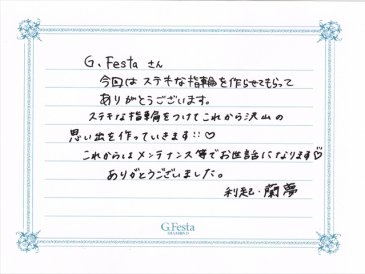 G.Festa さん
今回は ステキな指輪を作らせてもらって
ありがとうございます。
ステキな指輪をつけてこれから沢山の
思い出を作っていきます!!♡
これからはメンテナンス等でお世話になります♡
ありがとうございました。
利起・蘭夢
G.Festa